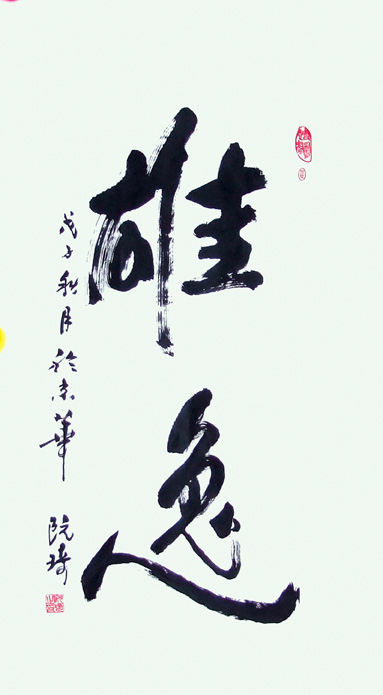 雄逸
戊子秋月於京華
阮琦